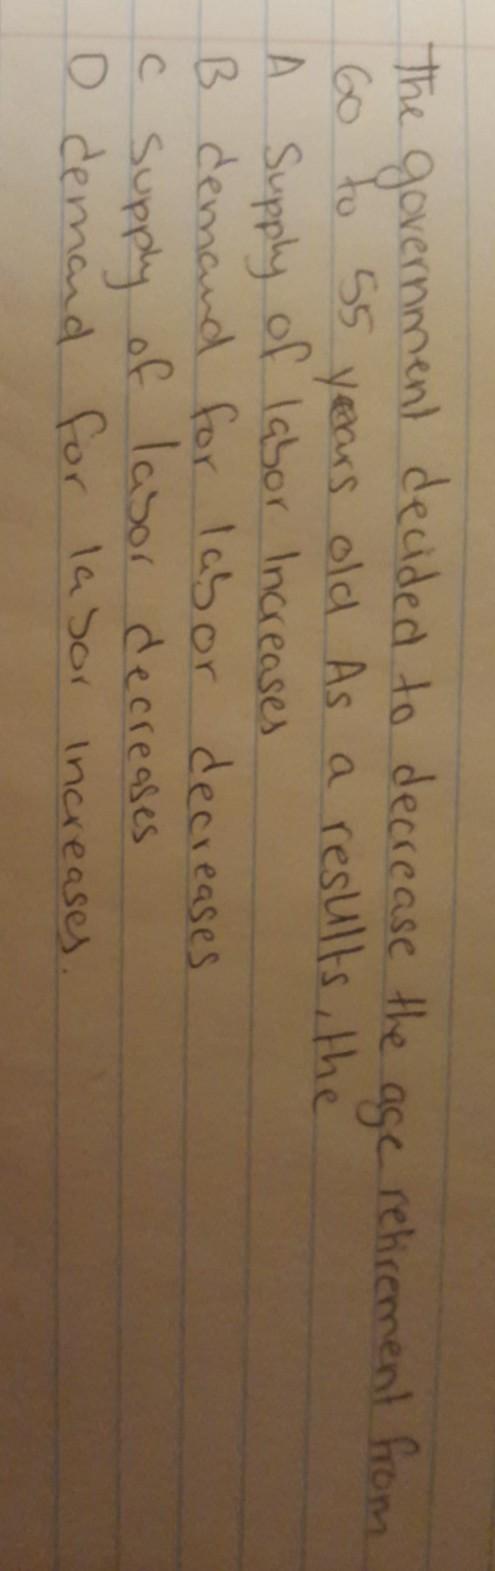 The government decided to decrease the age retirement from
60 to 55 years old As a results, the
A Supply of labor Increases
B demand for labor decreases
C Supply of labor decreases
D demand for labor Increases.